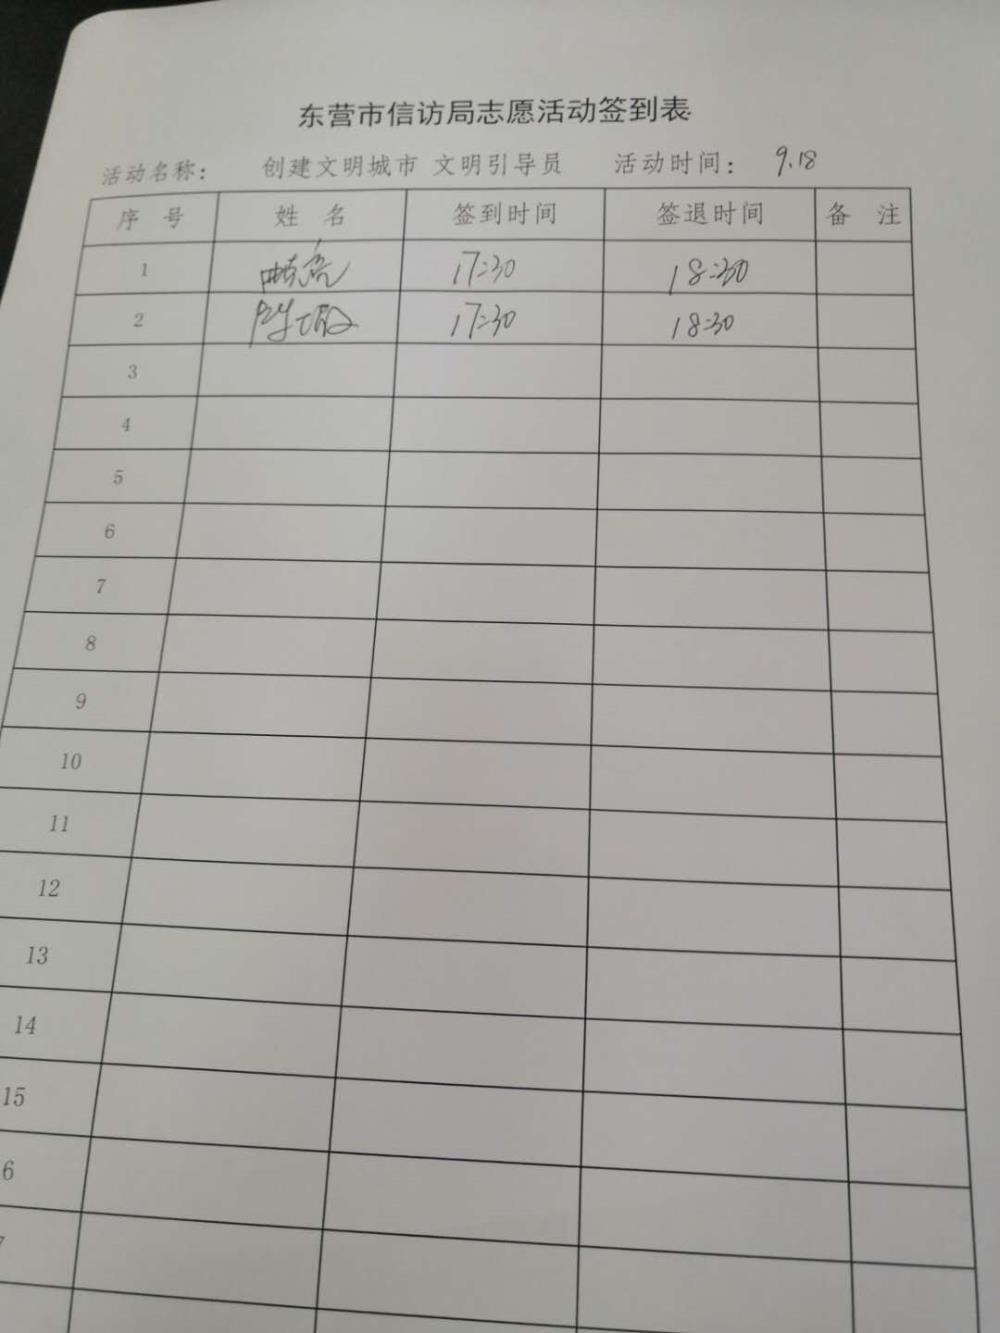 东营市信访局志愿活动签到表
活动名称： 创建文明城市 文明引导员 活动时间： 9.18
序 号 姓 名 签到时间 签退时间 备 注
1 17:30 18:30
2 17:30 18:30
3
4
5
6
7
8
9
10
11
12
13
14
15
6
7